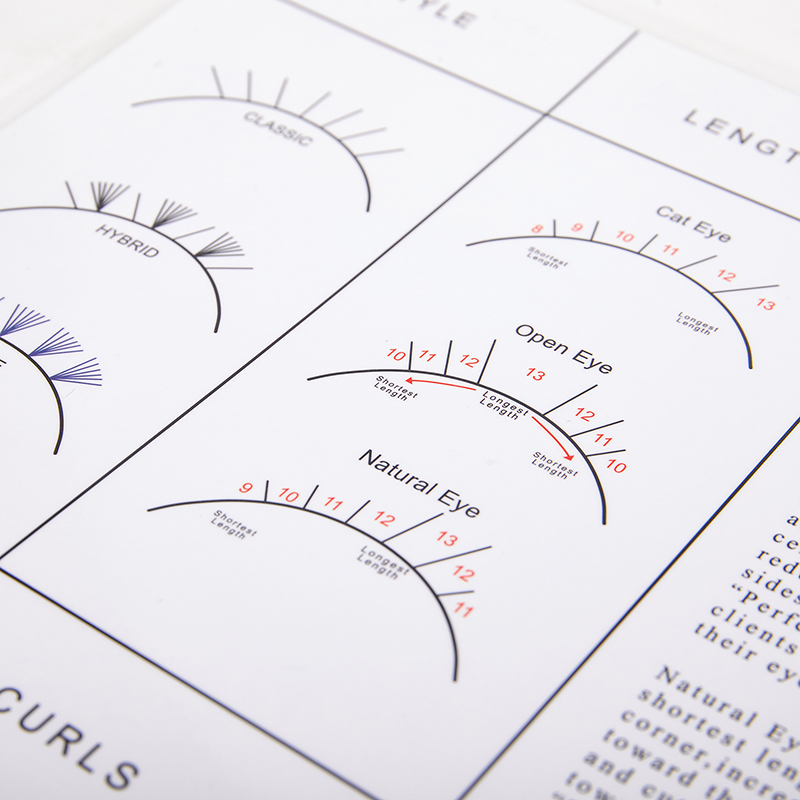 CLASSIC
HYBRID
Cat Eye
8 9 10 11 12 13
Shortest
Length
Longest
Length
Open Eye
10 11 12 13 12 11 10
Shortest
Length
Longest
Length
Shortest
Length
Natural Eye
9 10 11 12 13 12 11
Shortest
Length
Longest
Length
CURLS
“Perfe
clients
their eye
Natural Ey
shortest len
corner,incre
toward th
and cu